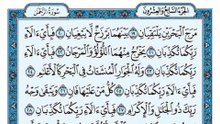 الجزء السابع والعشرون
سورة الرحمن
مَرَجَ ٱلْبَحْرَيْنِ يَلْتَقِيَانِ ١٩ بَيْنَهُمَا بَرْزَخٌ لَّا يَبْغِيَانِ ٢٠ فَبِأَيِّ ءَالَآءِ
رَبِّكُمَا تُكَذِّبَانِ ٢١ يَخْرُجُ مِنْهُمَا ٱللُّؤْلُؤُ وَٱلْمَرْجَانُ ٢٢ فَبِأَيِّ ءَالَآءِ
رَبِّكُمَا تُكَذِّبَانِ ٢٣ وَلَهُ ٱلْجَوَارِ ٱلْمُنشَـَٔاتُ فِي ٱلْبَحْرِ كَٱلْأَعْلَٰمِ ٢٤
فَبِأَيِّ ءَالَآءِ رَبِّكُمَا تُكَذِّبَانِ ٢٥ كُلُّ مَنْ عَلَيْهَا فَانٍ ٢٦ وَيَبْقَىٰ وَجْهُ
رَبِّكَ ذُو ٱلْجَلَٰلِ وَٱلْإِكْرَامِ ٢٧ فَبِأَيِّ ءَالَآءِ رَبِّكُمَا تُكَذِّبَانِ ٢٨